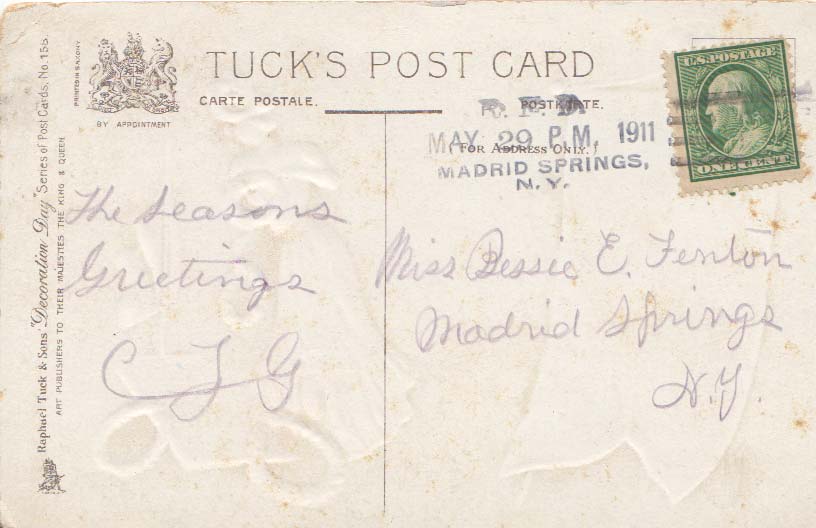 TUCK'S POST CARD
CARTE POSTALE.
POSTKARTE.
(FOR ADDRESS ONLY.)
BY APPOINTMENT
PRINTED IN SAXONY
Raphael Tuck & Sons' "Decoration Day" Series of Post Cards, No. 158.
ART PUBLISHERS TO THEIR MAJESTIES THE KING & QUEEN
R.F.D.
MAY 29 P.M. 1911
MADRID SPRINGS,
N.Y.
U.S. POSTAGE
ONE CENT
The Seasons
Greetings
C T G
Miss Bessie E. Fenton
Madrid Springs
N.Y.